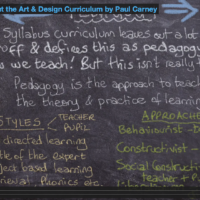 t the Art & Design Curriculum by Paul Carney
Syllabus curriculum leaves out a lot
off & defines this as pedagogy
we teach! But this isn't really
Pedagogy is the approach to teac
the theory & practice of learnin
STYLES TEACHER APPROACHE
PUPIL
directed learning Behaviourist
of the expert Constructivist
ject based learning Social Construct
Phonics etc teacher + P